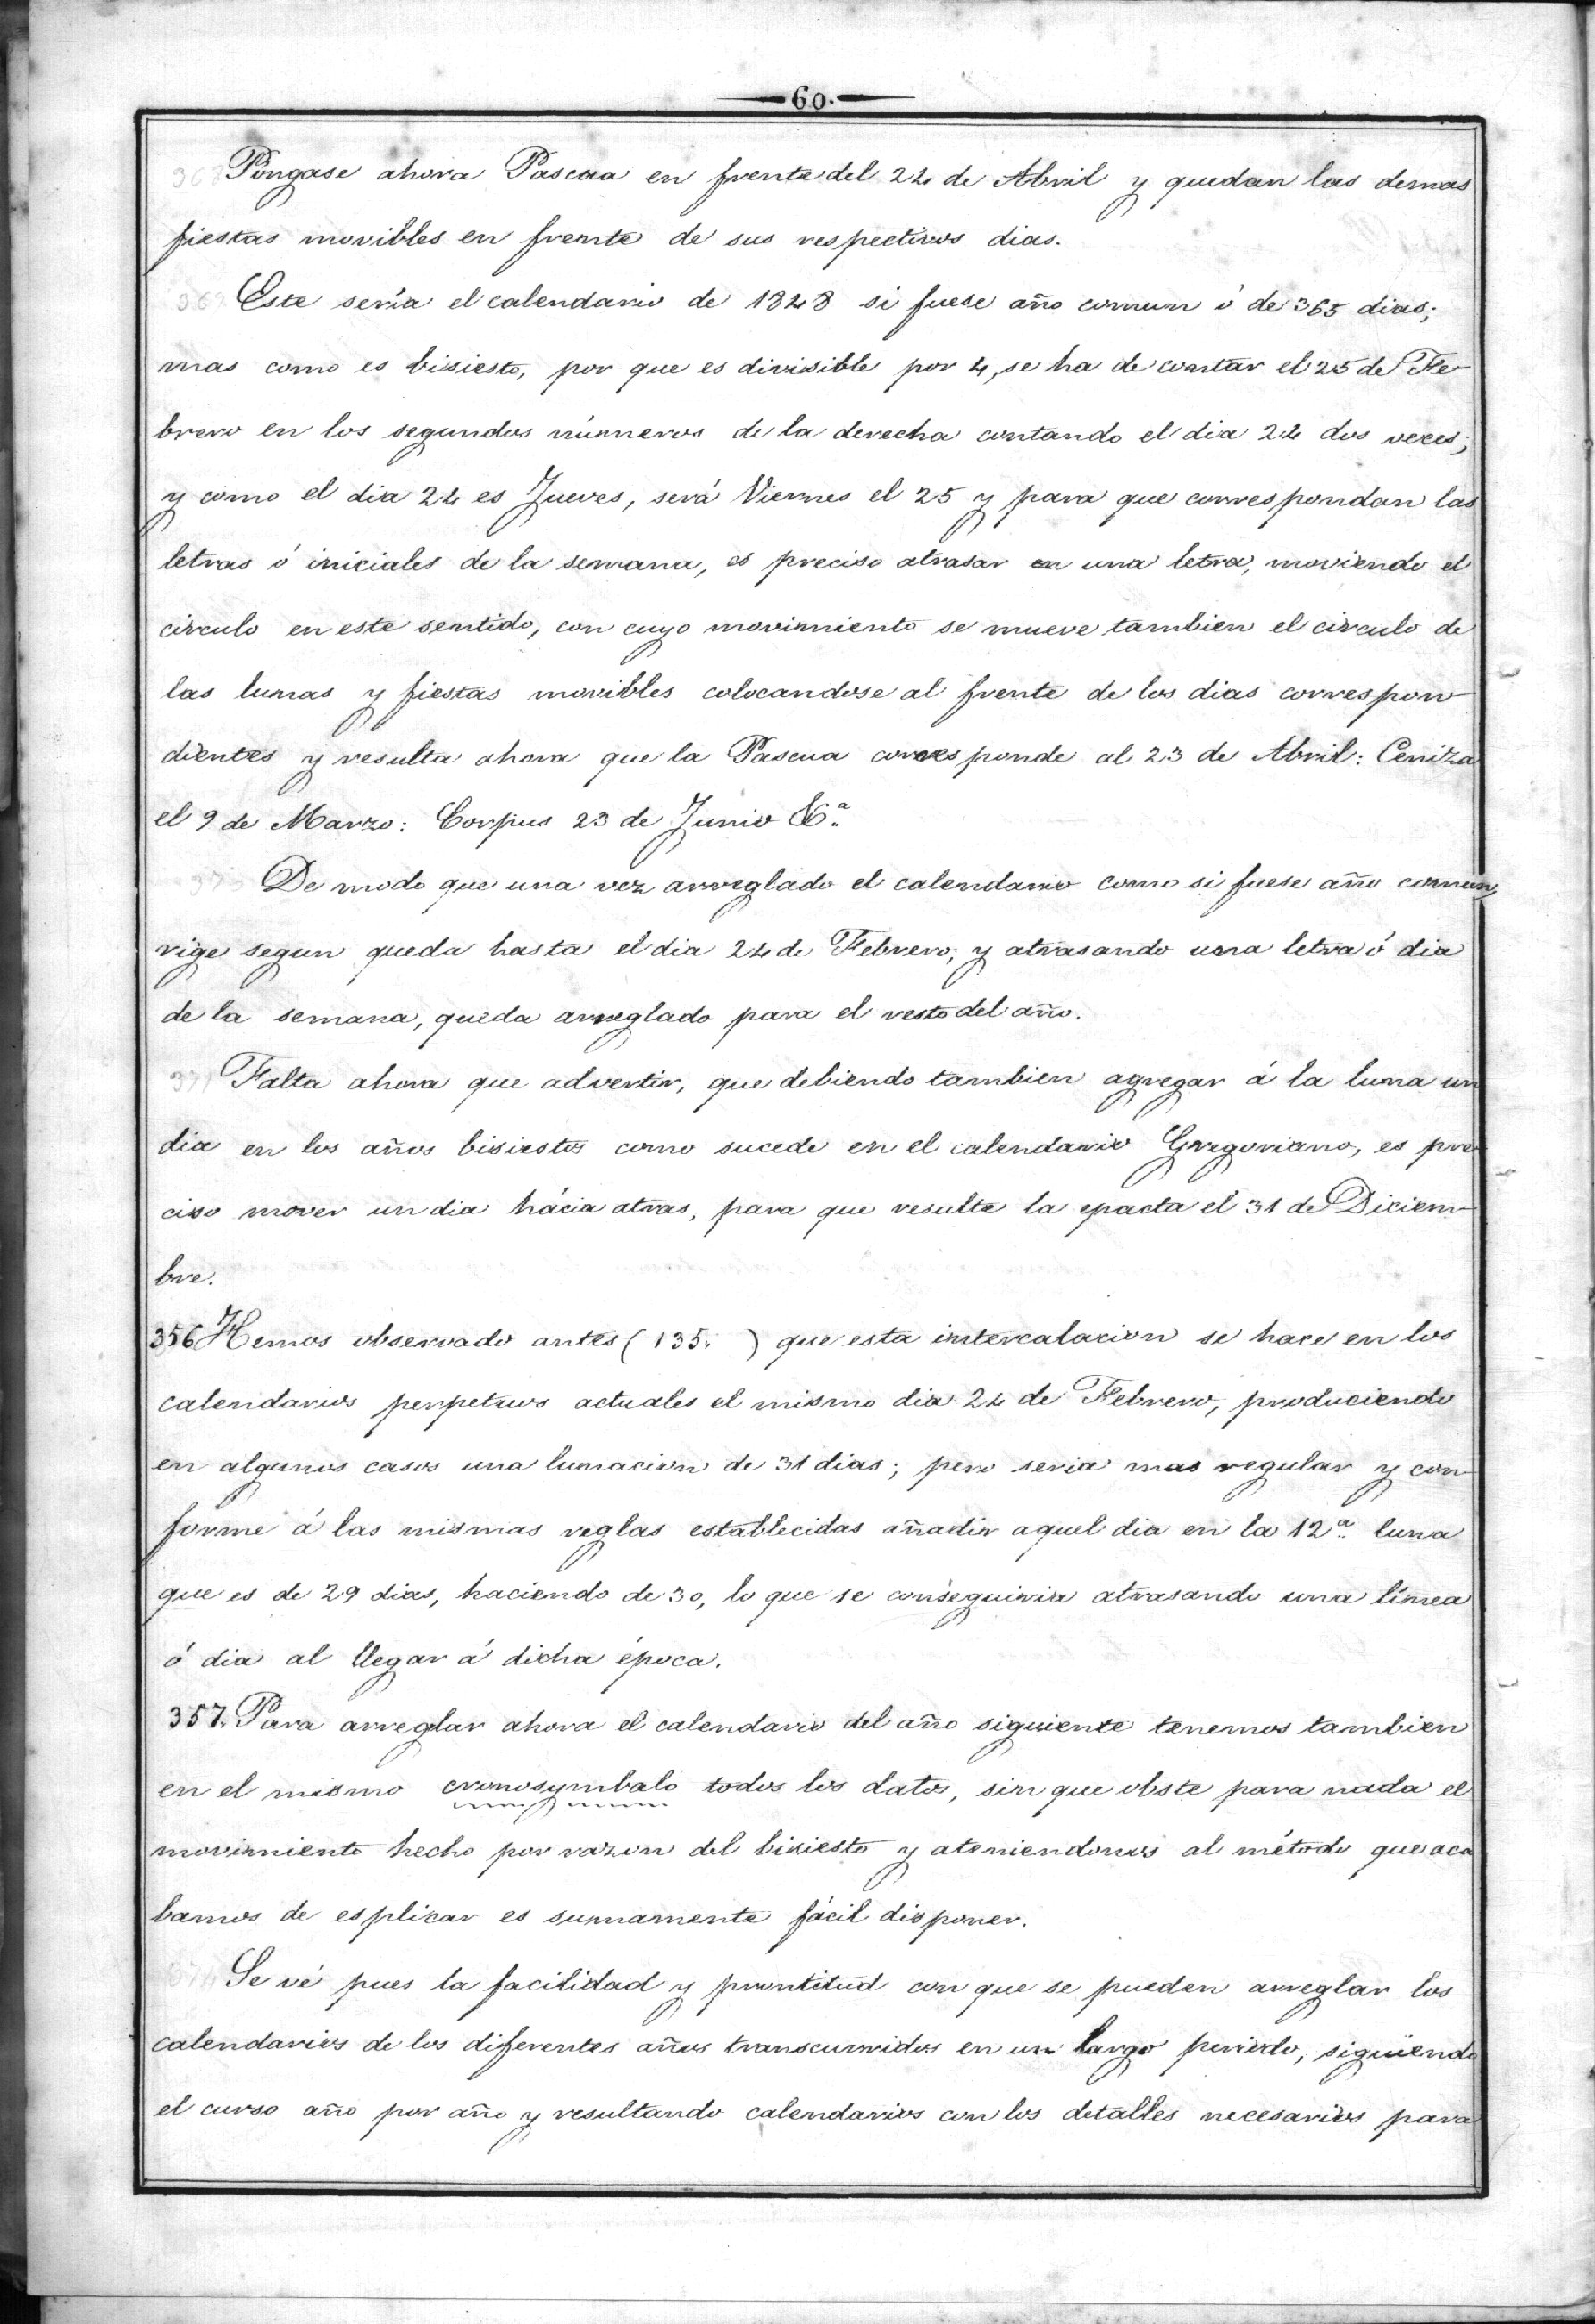 60.
Póngase ahora Pascua en frente del 24 de Abril y quedan las demas
fiestas movibles en frente de sus respectivos dias.
Este sería el calendario de 1848 si fuese año comun ó de 365 dias;
mas como es bisiesto, por que es divisible por 4, se ha de contar el 25 de Fe-
brero en los segundos números de la derecha contando el dia 24 dos veces;
y como el dia 24 es Jueves, será Viernes el 25 y para que correspondan las
letras ó iniciales de la semana, es preciso atrasar en una letra, moviendo el
círculo en este sentido, con cuyo movimiento se mueve tambien el circulo de
las lunas y fiestas movibles colocandose al frente de los dias correspon-
dientes y resulta ahora que la Pascua corresponde al 23 de Abril: Ceniza
el 9 de Marzo: Corpus 23 de Junio &ª.
De modo que una vez arreglado el calendario como si fuese año comun,
rige segun queda hasta el dia 24 de Febrero; y atrasando una letra ó dia
de la semana, queda arreglado para el resto del año.
Falta ahora que advertir, que debiendo tambien agregar á la luna un
dia en los años bisiestos como sucede en el calendario Gregoriano, es pre-
ciso mover un dia hácia atras, para que resulte la epacta el 31 de Diciem-
bre.
356 Hemos observado antes (135. ) que esta intercalacion se hace en los
calendarios perpetuos actuales el mismo dia 24 de Febrero, produciendo
en algunos casos una lunacion de 31 dias; pero seria mas regular y con-
forme á las mismas reglas establecidas añadir aquel dia en la 12ª. luna
que es de 29 dias, haciendo de 30, lo que se conseguiria atrasando una línea
ó dia al llegar á dicha época.
357. Para arreglar ahora el calendario del año siguiente tenemos tambien
en el mismo cronosymbalo todos los datos, sin que obste para nada el
movimiento hecho por razon del bisiesto y ateniendonos al método que aca-
bamos de esplicar es sumamente fácil disponer.
Se vé pues la facilidad y prontitud con que se pueden arreglar los
calendarios de los diferentes años transcurridos en un largo periodo, siguiendo
el curso año por año y resultando calendarios con los detalles necesarios para